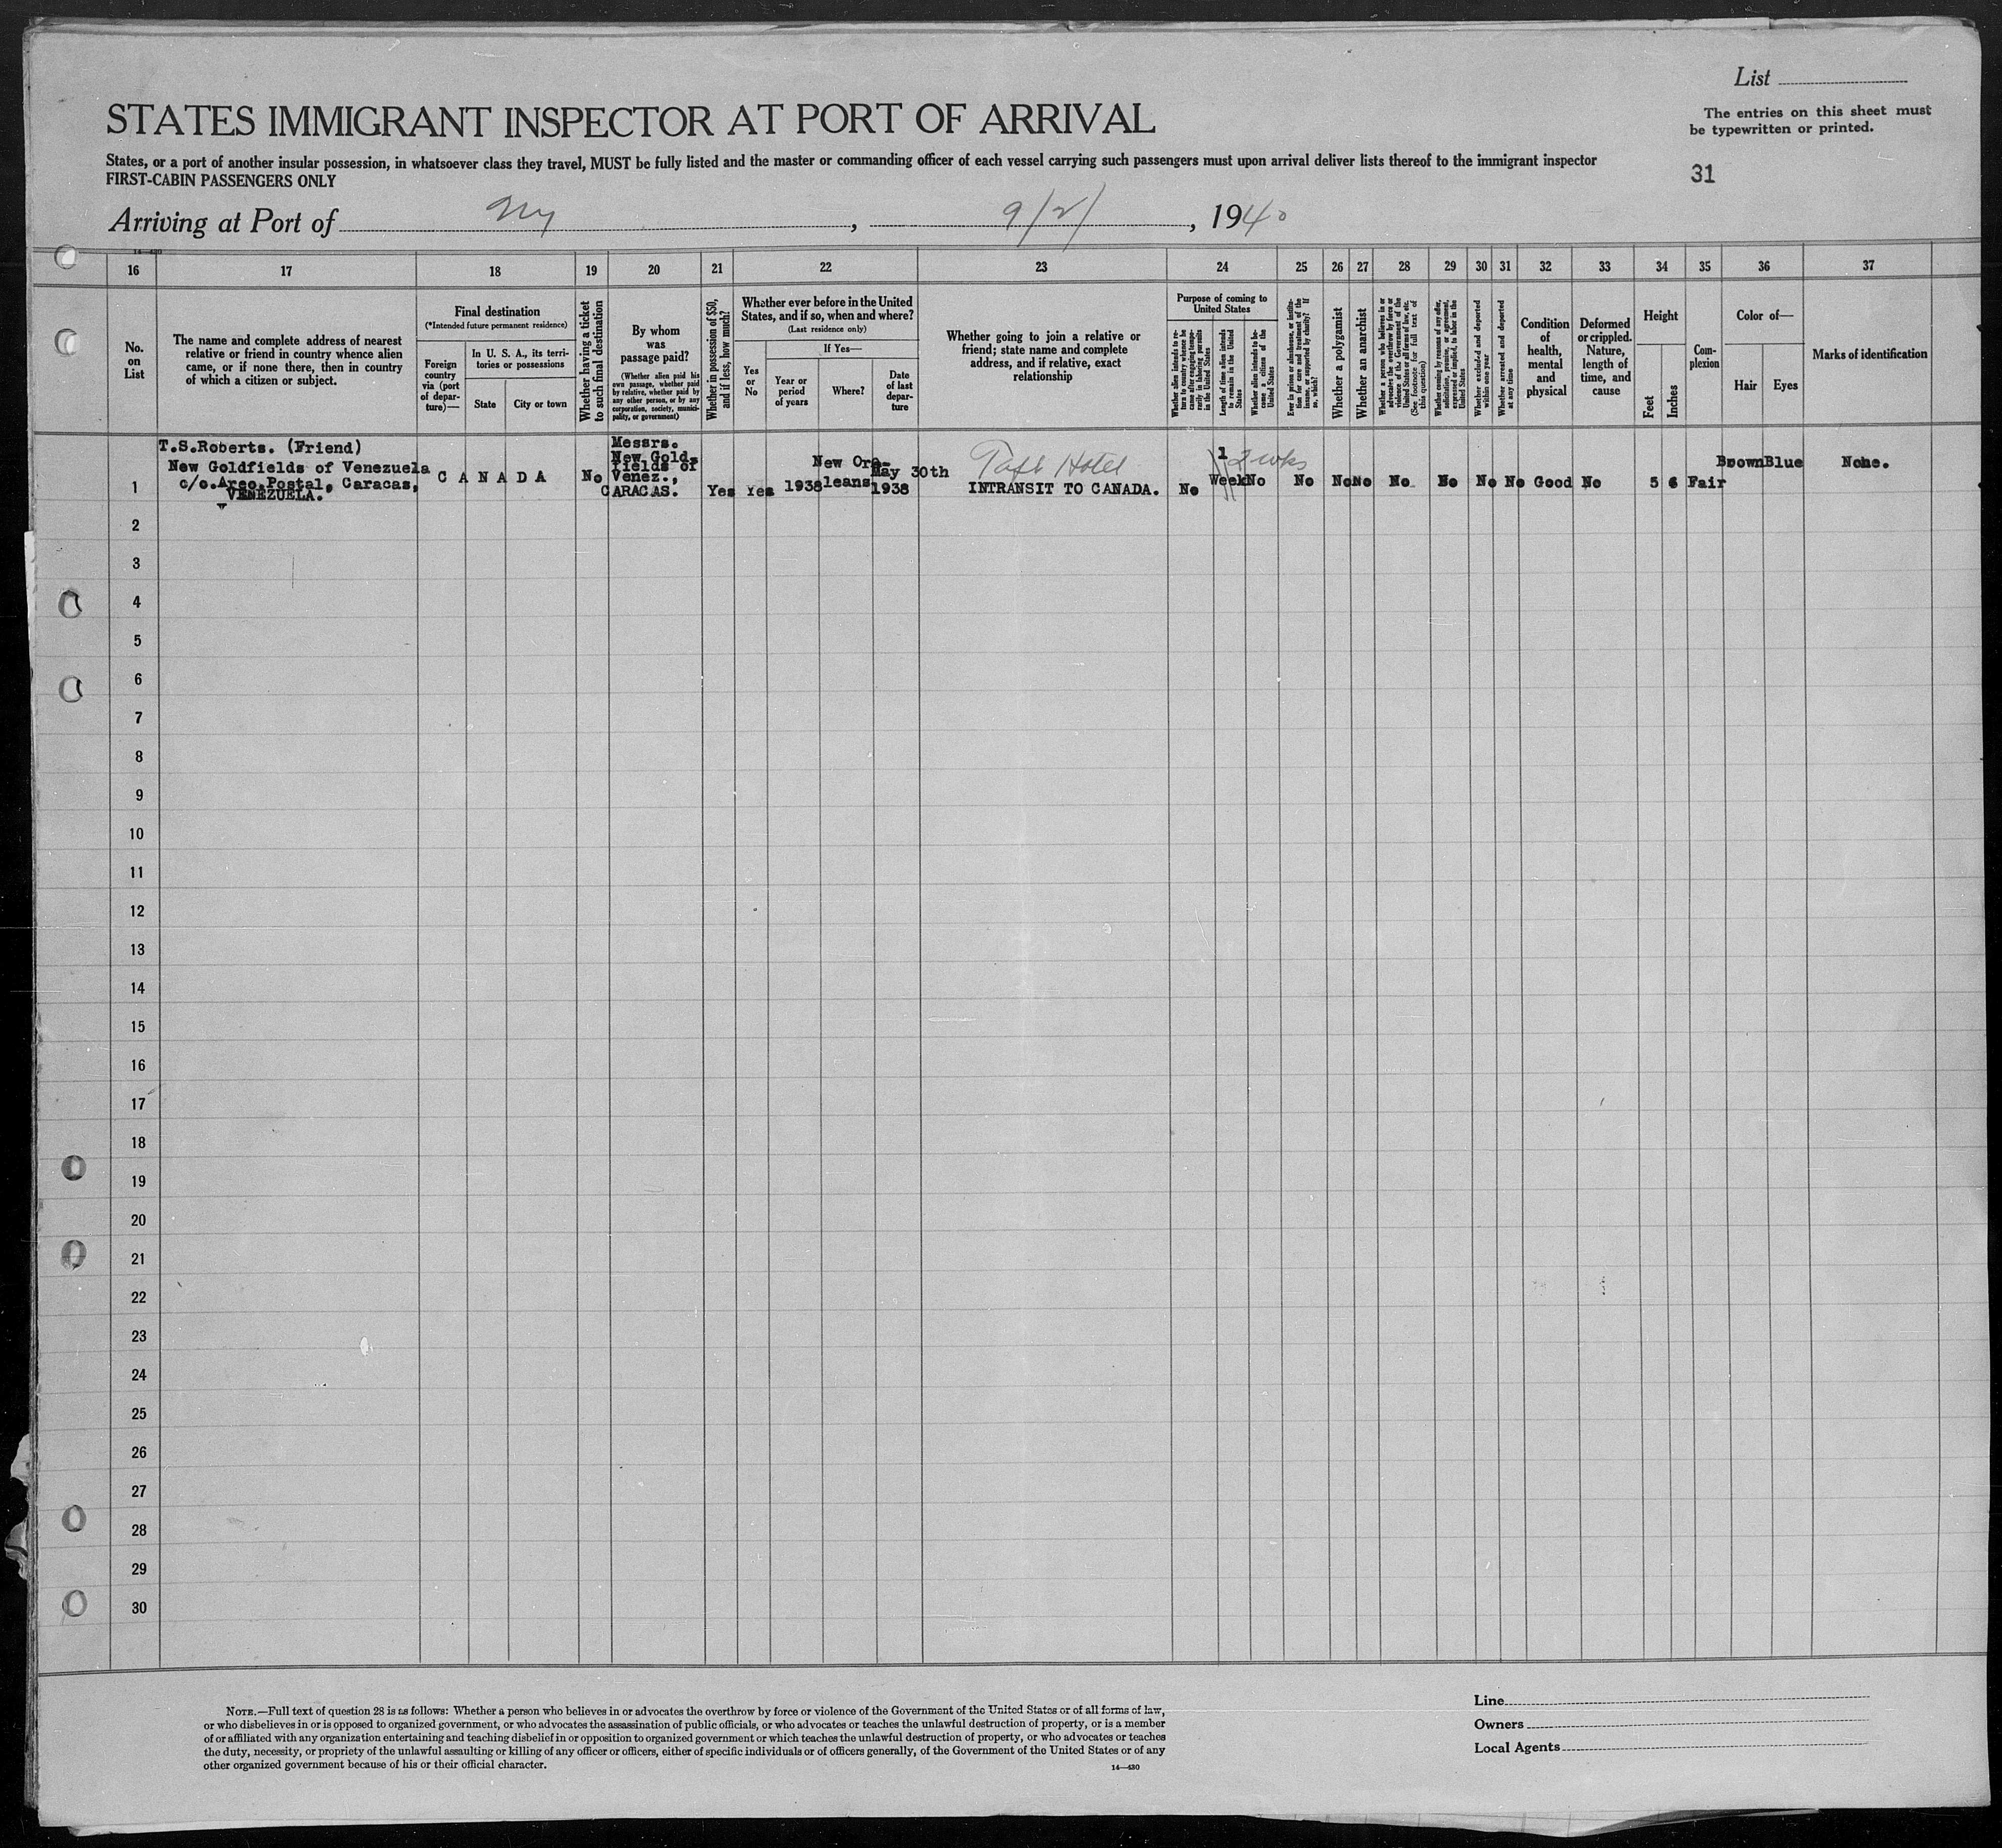 List
STATES IMMIGRANT INSPECTOR AT PORT OF ARRIVAL
The entries on this sheet must
be typewritten or printed.
States, or a port of another insular possession, in whatsoever class they travel, MUST be fully listed and the master or commanding officer of each vessel carrying such passengers must upon arrival deliver lists thereof to the immigrant inspector
FIRST-CABIN PASSENGERS ONLY
31
Arriving at Port of NY, 9/2/, 1940
14-430
16 17 18 19 20 21 22 23 24 25 26 27 28 29 30 31 32 33 34 35 36 37
No.
on
List
The name and complete address of nearest
relative or friend in country whence alien
came, or if none there, then in country
of which a citizen or subject.
Final destination
(*Intended future permanent residence)
Foreign
country
via (port
of depar-
ture)—
In U. S. A., its terri-
tories or possessions
State
City or town
Whether having a ticket
to such final destination
By whom
was
passage paid?
(Whether alien paid his
own passage, whether paid
by relative, whether paid by
any other person, or by any
corporation, society, munici-
pality, or government)
Whether in possession of $50,
and if less, how much?
Whether ever before in the United
States, and if so, when and where?
(Last residence only)
Yes
or
No
If Yes—
Year or
period
of years
Where?
Date
of last
depar-
ture
Whether going to join a relative or
friend; state name and complete
address, and if relative, exact
relationship
Purpose of coming to
United States
Whether alien intends to re-
turn to country whence he
came after engaging tempo-
rarily in laboring pursuits
in the United States
Length of time alien intends
to remain in the United
States
Whether alien intends to be-
come a citizen of the
United States
Ever in prison or almshouse, or institu-
tion for care and treatment of the
insane, or supported by charity? If
so, which?
Whether a polygamist
Whether an anarchist
Whether a person who believes in or
advocates the overthrow by force or
violence of the Government of the
United States or all forms of law, etc.
(See footnote for full text of
this question)
Whether coming by reasons of any offer,
solicitation, promise or agreement,
expressed or implied, to labor in the
United States
Whether excluded and deported
within one year
Whether arrested and deported
at any time
Condition
of
health,
mental
and
physical
Deformed
or crippled.
Nature,
length of
time, and
cause
Height
Feet
Inches
Com-
plexion
Color of—
Hair
Eyes
Marks of identification
T.S.Roberts. (Friend)
New Goldfields of Venezuela
c/o.Areo Postal, Caracas,
VENEZUELA.
CANADA
No
Messrs.
New Gold-
fields of
Venez.,
CARACAS.
Yes Yes 1938
New Or-
leans
May 30th
1938
Taft Hotel
INTRANSIT TO CANADA.
No
1
Week
2 wks
No No No No No No No No Good No 5 6 Fair Brown Blue None.
1
2
3
4
5
6
7
8
9
10
11
12
13
14
15
16
17
18
19
20
21
22
23
24
25
26
27
28
29
30
NOTE.—Full text of question 28 is as follows: Whether a person who believes in or advocates the overthrow by force or violence of the Government of the United States or of all forms of law,
or who disbelieves in or is opposed to organized government, or who advocates the assassination of public officials, or who advocates or teaches the unlawful destruction of property, or is a member
of or affiliated with any organization entertaining and teaching disbelief in or opposition to organized government or which teaches the unlawful destruction of property, or who advocates or teaches
the duty, necessity, or propriety of the unlawful assaulting or killing of any officer or officers, either of specific individuals or of officers generally, of the Government of the United States or of any
other organized government because of his or their official character.
14—430
Line
Owners
Local Agents